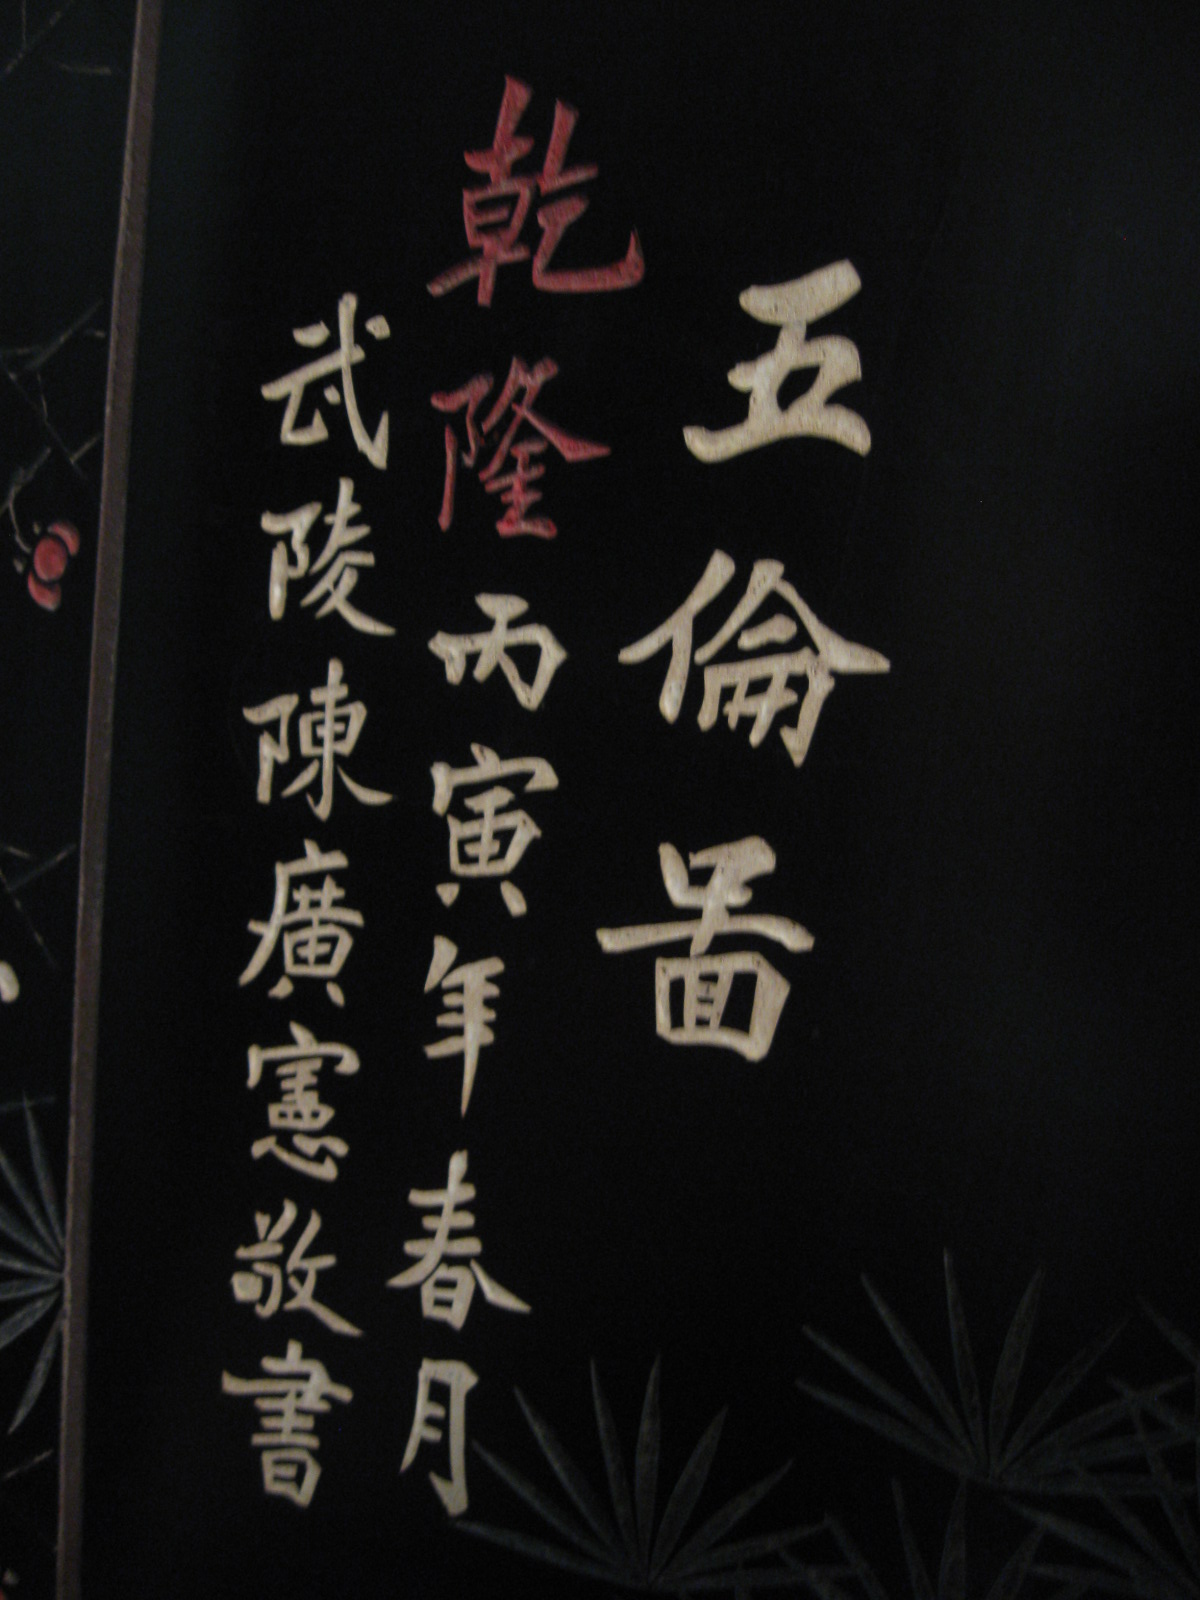 五倫啚
乾隆丙寅年春月
武陵陳廣憲敬書